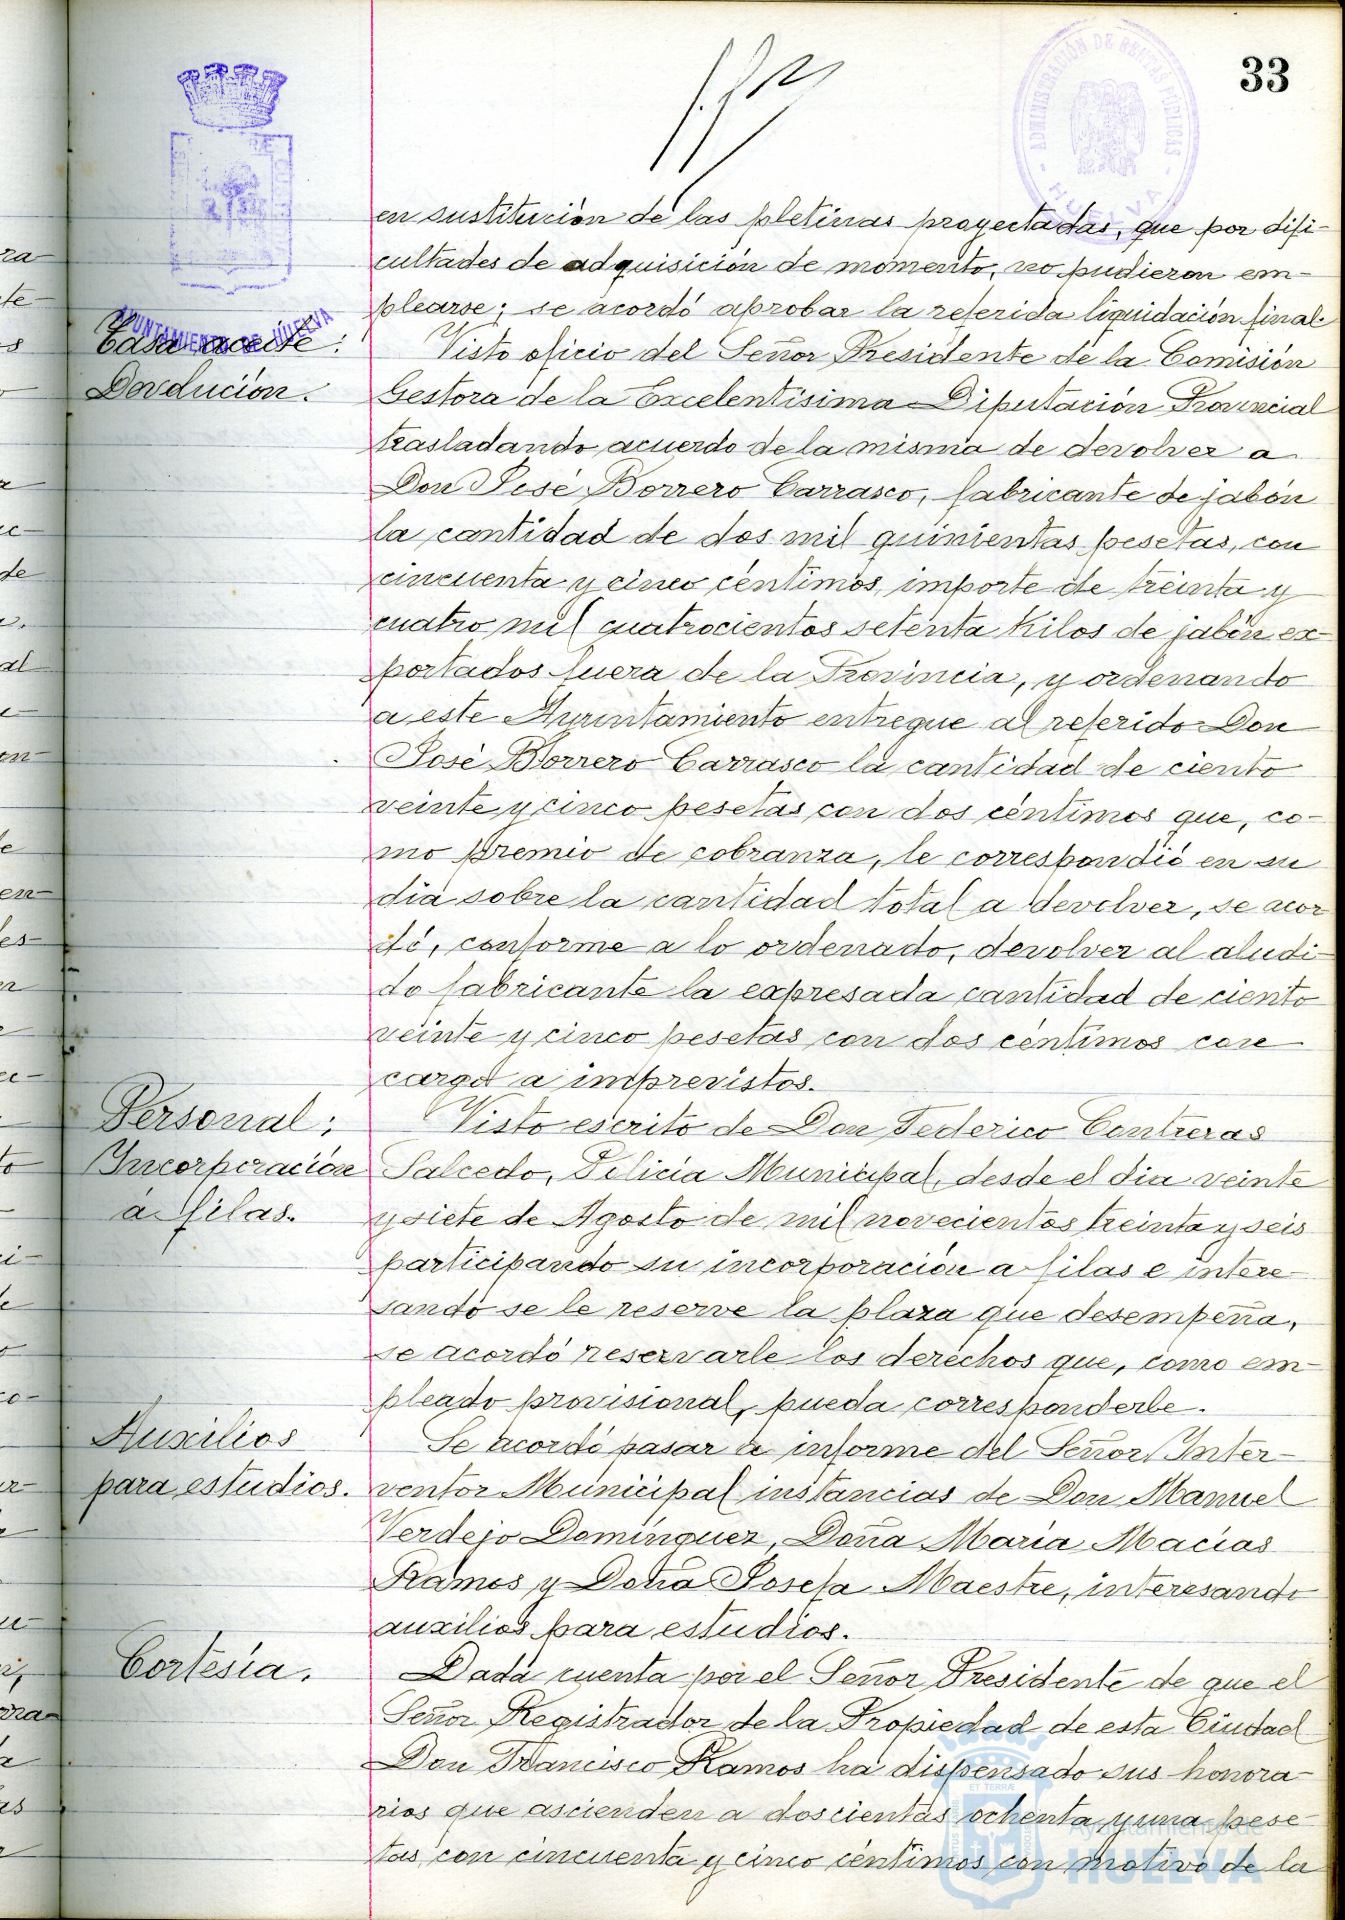 33
ADMINISTRACIÓN DE RENTAS PÚBLICAS
HUELVA
AYUNTAMIENTO DE HUELVA
en sustitución de las pletinas proyectadas, que por difi-
cultades de adquisición de momento, no pudieron em-
plearse; se acordó aprobar la referida liquidación final.
Tasa aceite:
Devolución.
Visto oficio del Señor Presidente de la Comisión
Gestora de la Excelentísima Diputación Provincial
trasladando acuerdo de la misma de devolver a
Don José Borrero Carrasco, fabricante de jabón
la cantidad de dos mil quinientas pesetas, con
cincuenta y cinco céntimos, importe de treinta y
cuatro mil cuatrocientos setenta Kilos de jabón ex-
portados fuera de la Provincia, y ordenando
a este Ayuntamiento entregue al referido Don
José Borrero Carrasco la cantidad de ciento
veinte y cinco pesetas con dos céntimos que, co-
mo premio de cobranza, le correspondió en su
dia sobre la cantidad total a devolver, se acor
dó, conforme a lo ordenado, devolver al aludi-
do fabricante la expresada cantidad de ciento
veinte y cinco pesetas con dos céntimos con
cargo a imprevistos.
Personal:
Incorporación
á filas.
Visto escrito de Don Federico Contreras
Salcedo, Policía Municipal, desde el dia veinte
y siete de Agosto de mil novecientos treinta y seis
participando su incorporación a filas e intere-
sando se le reserve la plaza que desempeña,
se acordó reservarle los derechos que, como em-
pleado provisional, pueda corresponderle.
Auxilios
para estudios.
Se acordó pasar a informe del Señor Inter-
ventor Municipal instancias de Don Manuel
Verdejo Domínguez, Doña María Macías
Ramos y Doña Josefa Maestre, interesando
auxilios para estudios.
Cortesía.
Dada cuenta por el Señor Presidente de que el
Señor Registrador de la Propiedad de esta Ciudad
Don Francisco Ramos ha dispensado sus honora-
rios que ascienden a doscientas ochenta y una pese-
tas, con cincuenta y cinco céntimos con motivo de la
Ayuntamiento de
HUELVA